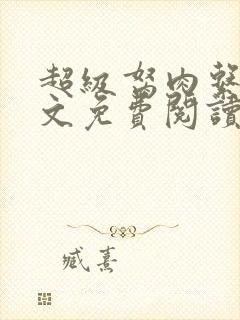 超級弩肉系
文免費閱讀
臧熹